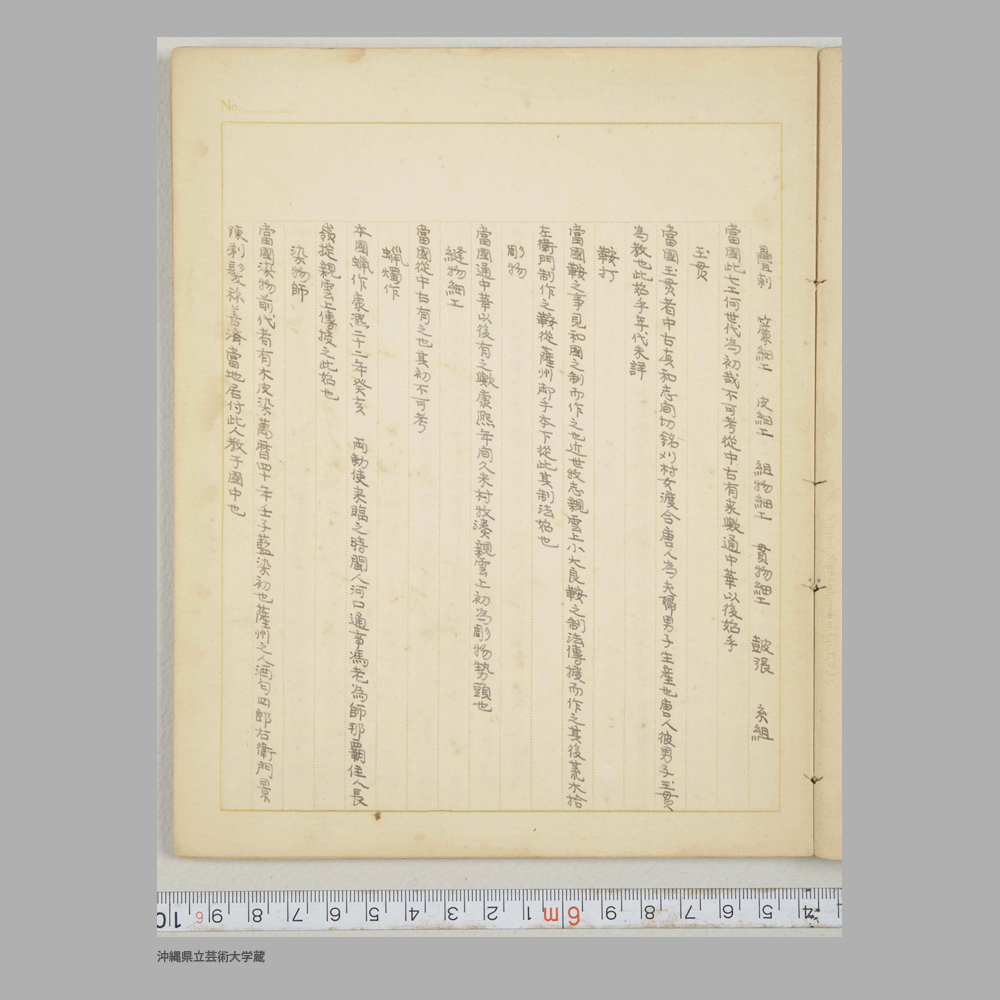 No.
疊刺 簾細工 皮細工 組物細工 貫物細工 皷張 糸組
當國此七工何世代為初哉不可考從中古有来歟通中華以後始乎
玉貫
當國玉貫者中古真和志间切銘刈村女渡合唐人為夫婦男子生產也唐人彼男子玉貫
為教也此始乎年代未詳
鞍打
當國鞍之事見和國之制而作之也近世牧志親雲上小大良鞍之制法傳授而作之其後荒木拾
左衛門制作之鞍從薩州御手本下從此其制法始也
彫物
當國通中華以後有之歟康熙年间久米村牧湊親雲上初為彫物勢頭也
縫物細工
當國從中古有之也其初不可考
蝋燭作
本國蝋作康熙二十二年癸亥 両勅使来臨之時閩人河口通事馮老為師那覇住人長
嶺掟親雲上傳授之此始也
染物師
當國染物前代者有木皮染萬暦四十年壬子藍染初也薩州之人酒匂四郎右衛門景
陳剃髪称善済當地居付此人教于國中也
10 6 9 8 7 6 5 4 3 2 1 6m 9 8 7 6 5 4
沖縄県立芸術大学蔵